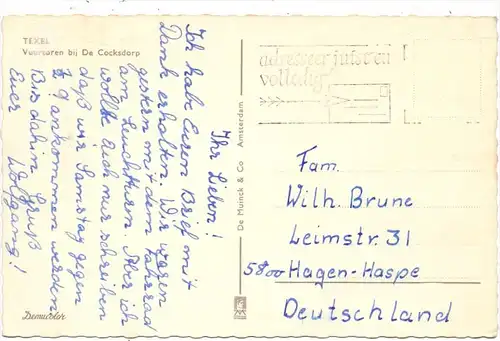 TEXEL
Vuurtoren bij De Cocksdorp
Ihr Lieben!
Ich habe Euren Brief mit
Dank erhalten. Wir waren
gestern mit dem Fahrrad
am Leuchtturm. Aber ich
wollte Euch nur schreiben
daß wir Samstag gegen
9 ankommen werden
Bis dahin Gruß
Euer Wolfgang!
Demucolor
De Muinck & Co Amsterdam
adresseer juist en
volledig
Fam.
Wilh. Brune
Leimstr. 31
5800 Hagen-Haspe
Deutschland